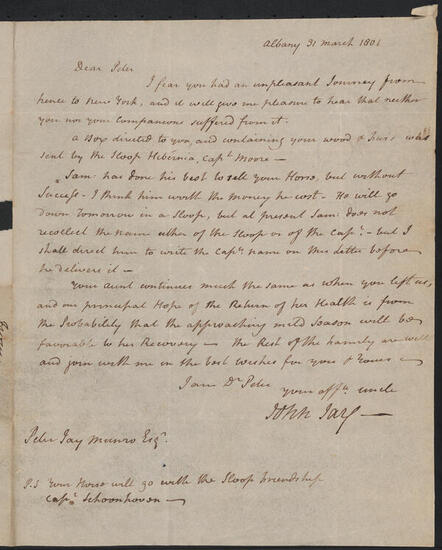 Albany 31 march 1801
Dear Peter
I fear you had an unpleasant Journey from
hence to New York, and it will give me pleasure to hear that neither
you nor your companions suffered from it.
a Box directed to you, and containing your wood & was
sent by the Sloop Hibernia, Capt. Moore —
Sam has done his best to sell your Horse, but without
Success — I think him worth the money he cost — He will go
Down tomorrow in a Sloop, but at present Sam does not
recollect the name either of the Sloop or of the Capt. — but I
shall direct him to write the Capts. name on this letter before
he delivers it —
your aunt continues much the same as when you left us,
and our principal Hope of the Return of her Health is from
the Probability that the approaching mild Season will be
favorable to her Recovery — the Rest of the family are well
and join with me in the best wishes for you & yours —
I am Dr. Peter
your afft. uncle
John Jay —
Peter Jay Munro Esqr.
P.S your Horse will go with the Sloop friendship
Capt. Schoonhoven —